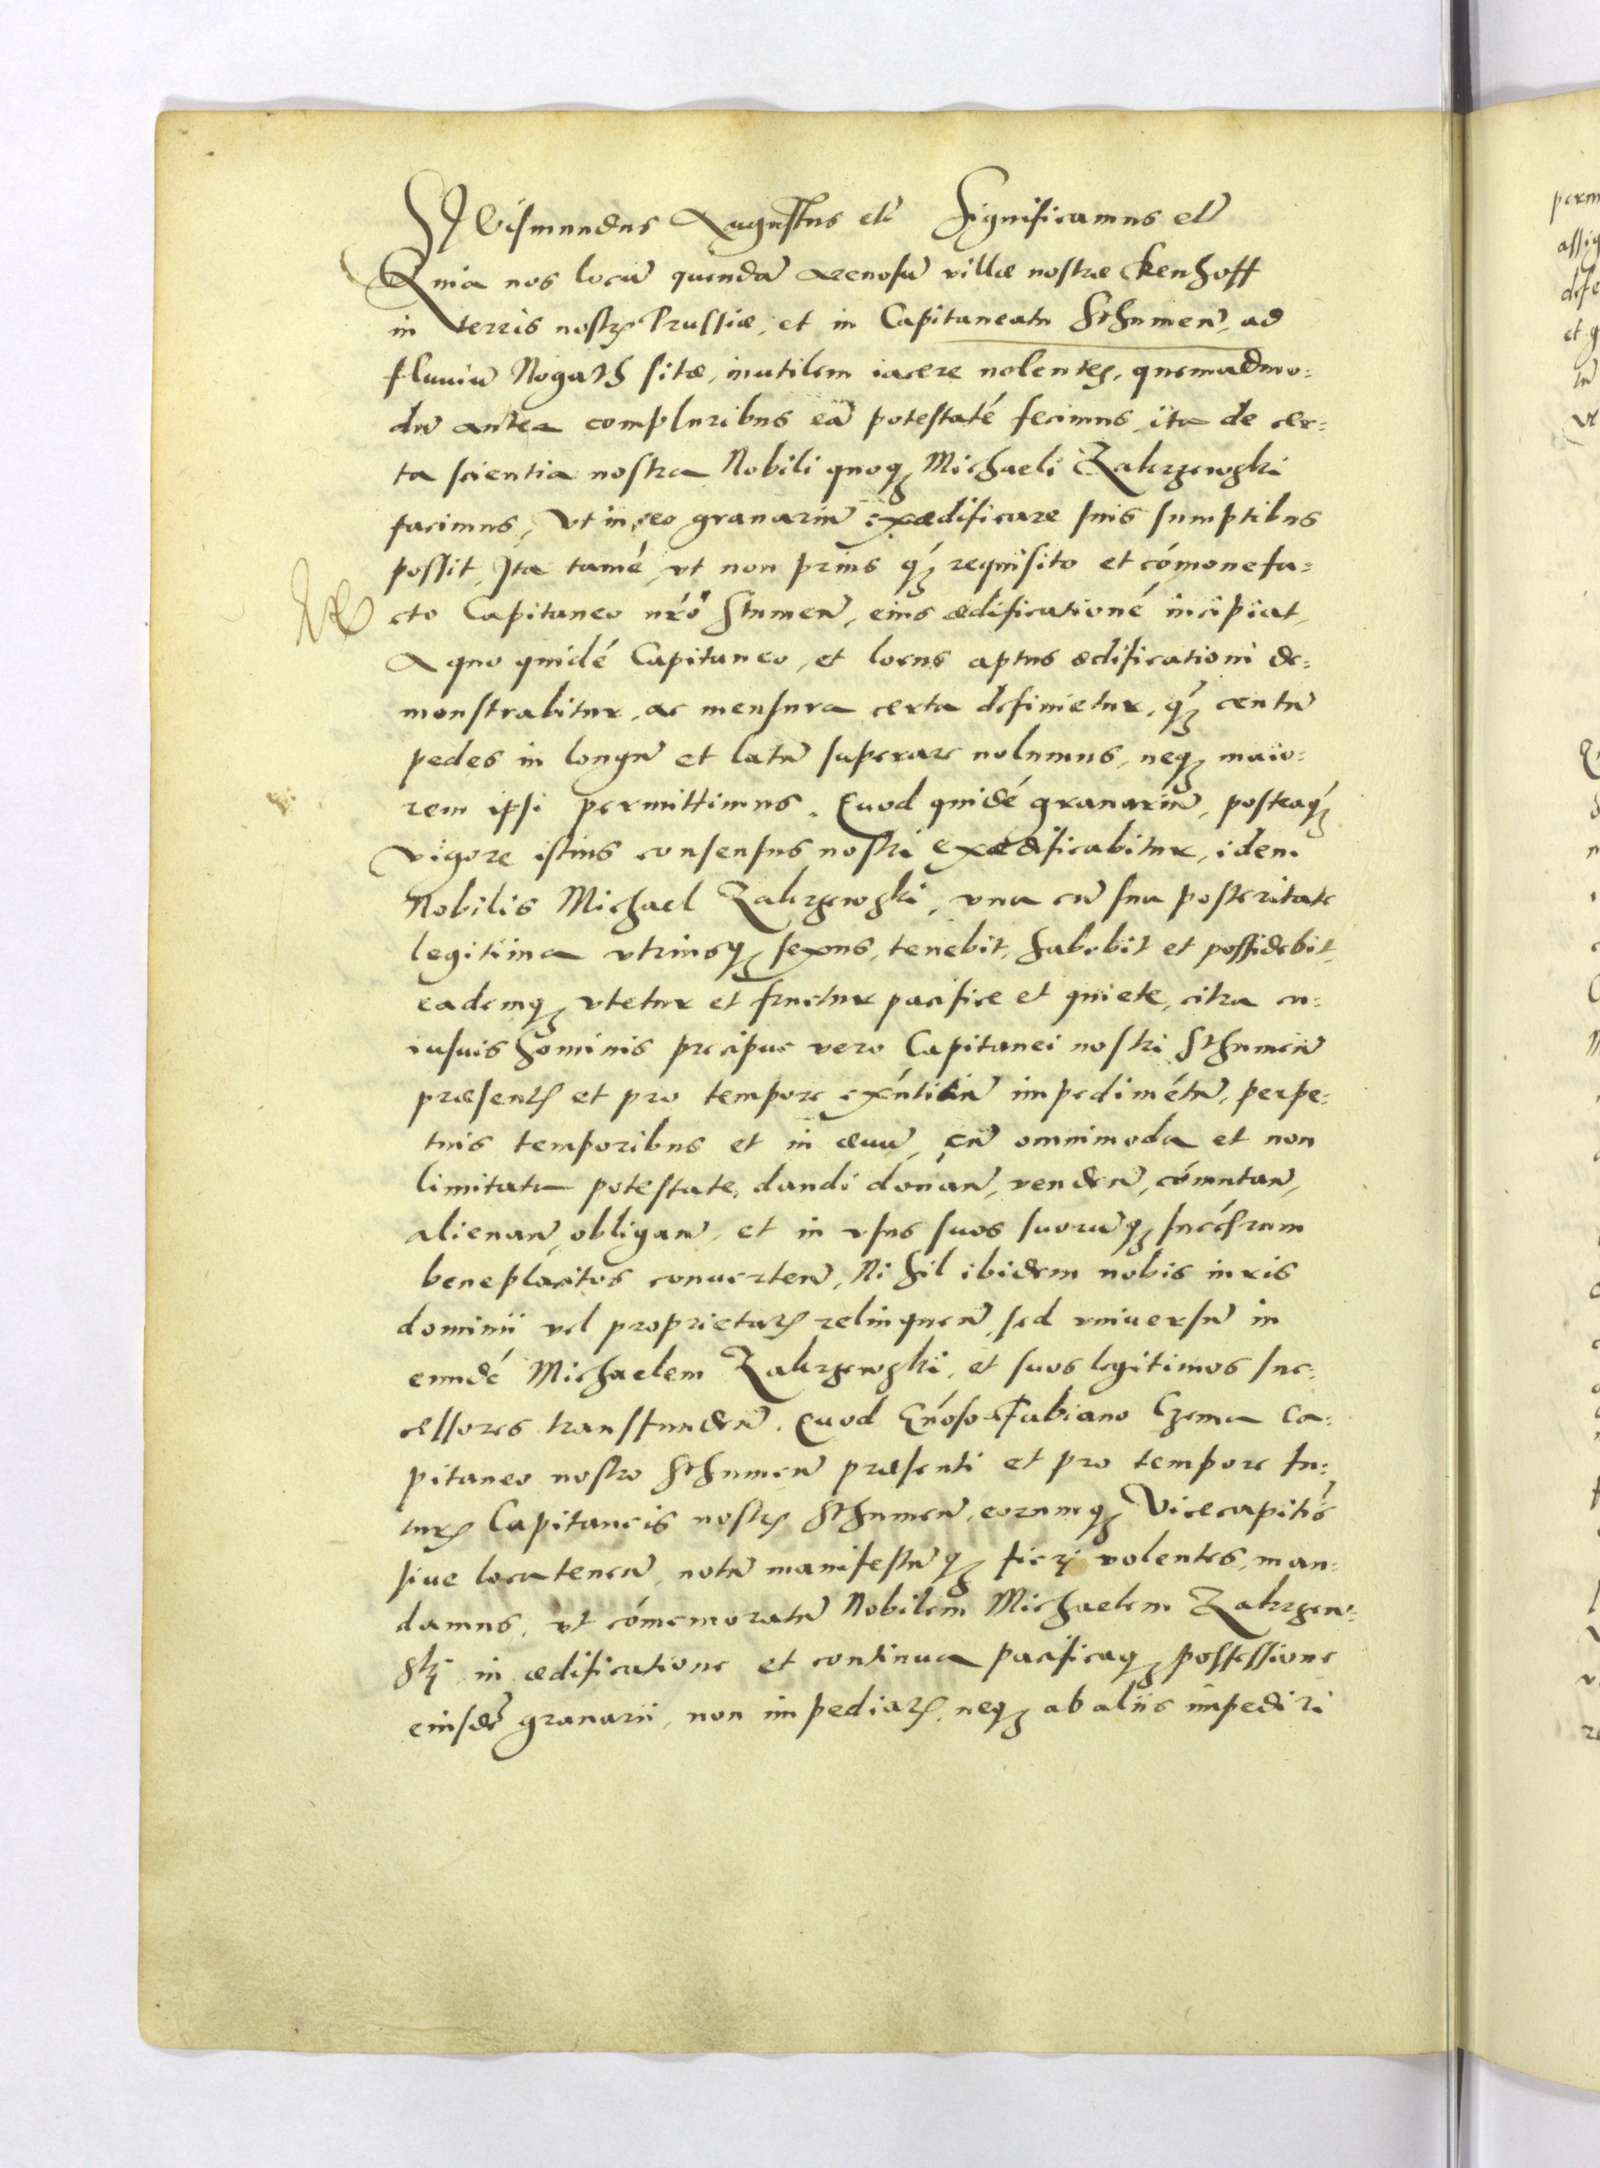 Sigismundus Augustus etc̃ Significamus etc̃
Quia nos locũ quendã arenosũ villæ nostræ Ekenhoff
in terris nostrꝭ Prussiæ, et in Capitaneatu Sthumeñ, ad
fluviũ Nogath sitæ, inutilem iacere nolentes, quemadmo=
dũ antea compluribus eã potestatẽ fecimus, ita de cer=
ta scientia nostra Nobili quoqꝫ Michaeli Zakrzewski
facimus, vt in eo granariũ exædificare suis sumptibus
possit, Ita tamẽ vt non prius q̃ꝫ requisito et cõmonefa=
cto Capitaneo nr̃o Stumeñ, eius ædificationẽ incipiat,
A quo quidẽ Capitaneo, et locus aptus ædificationi de=
monstrabitur, ac mensura certa definietur, q̃ꝫ centũ
pedes in longũ et latũ superare nolumus, neqꝫ maio=
rem ipsi permittimus. Quod quidẽ granariũ, posteaq̃ꝫ
vigore istius consensus nostri exædificabitur, idem
Nobilis Michael Zakrzewski, vna cũ sua posteritate
legitima vtriusqꝫ sexus, tenebit, habebit et possidebit,
eademqꝫ vtetur et fruetur pacifice et quiete, citra cu=
iusuis hominis præcipue vero Capitanei nostri Sthumeñ
præsentꝭ et pro tempore exñtium impedimẽtũ, perpe=
tuis temporibus et in ævũ, cũ omnimoda et non
limitata potestate, dandi donañ, vendeñ, cõmutañ,
alienañ, obligañ, et in vsus suos suorũqꝫ succẽssrum
beneplacitos convertẽn, Nihil ibidem nobis iuris
dominii vel proprietatꝭ relinqueñ, sed vniversũ in
eundẽ Michaelem Zakrzewski, et suos legitimos suc=
cessores transfundeñ. Quod Gñoso Fabiano Czema Ca=
pitaneo nostro Sthumeñ præsenti et pro tempore fu=
turꝭ Capitaneis nostrꝭ Sthumeñ, eorumqꝫ Vicecapitñs
sive locateneñ, notũ manifestũqꝫ fieri volentes, man=
damus, vt cõmemoratũ Nobilem Michaelem Zakrzew=
ski in ædificatione et continua pacificaqꝫ possessione
eiusdẽ granarii, non impediatꝭ, neqꝫ ab aliis impediri